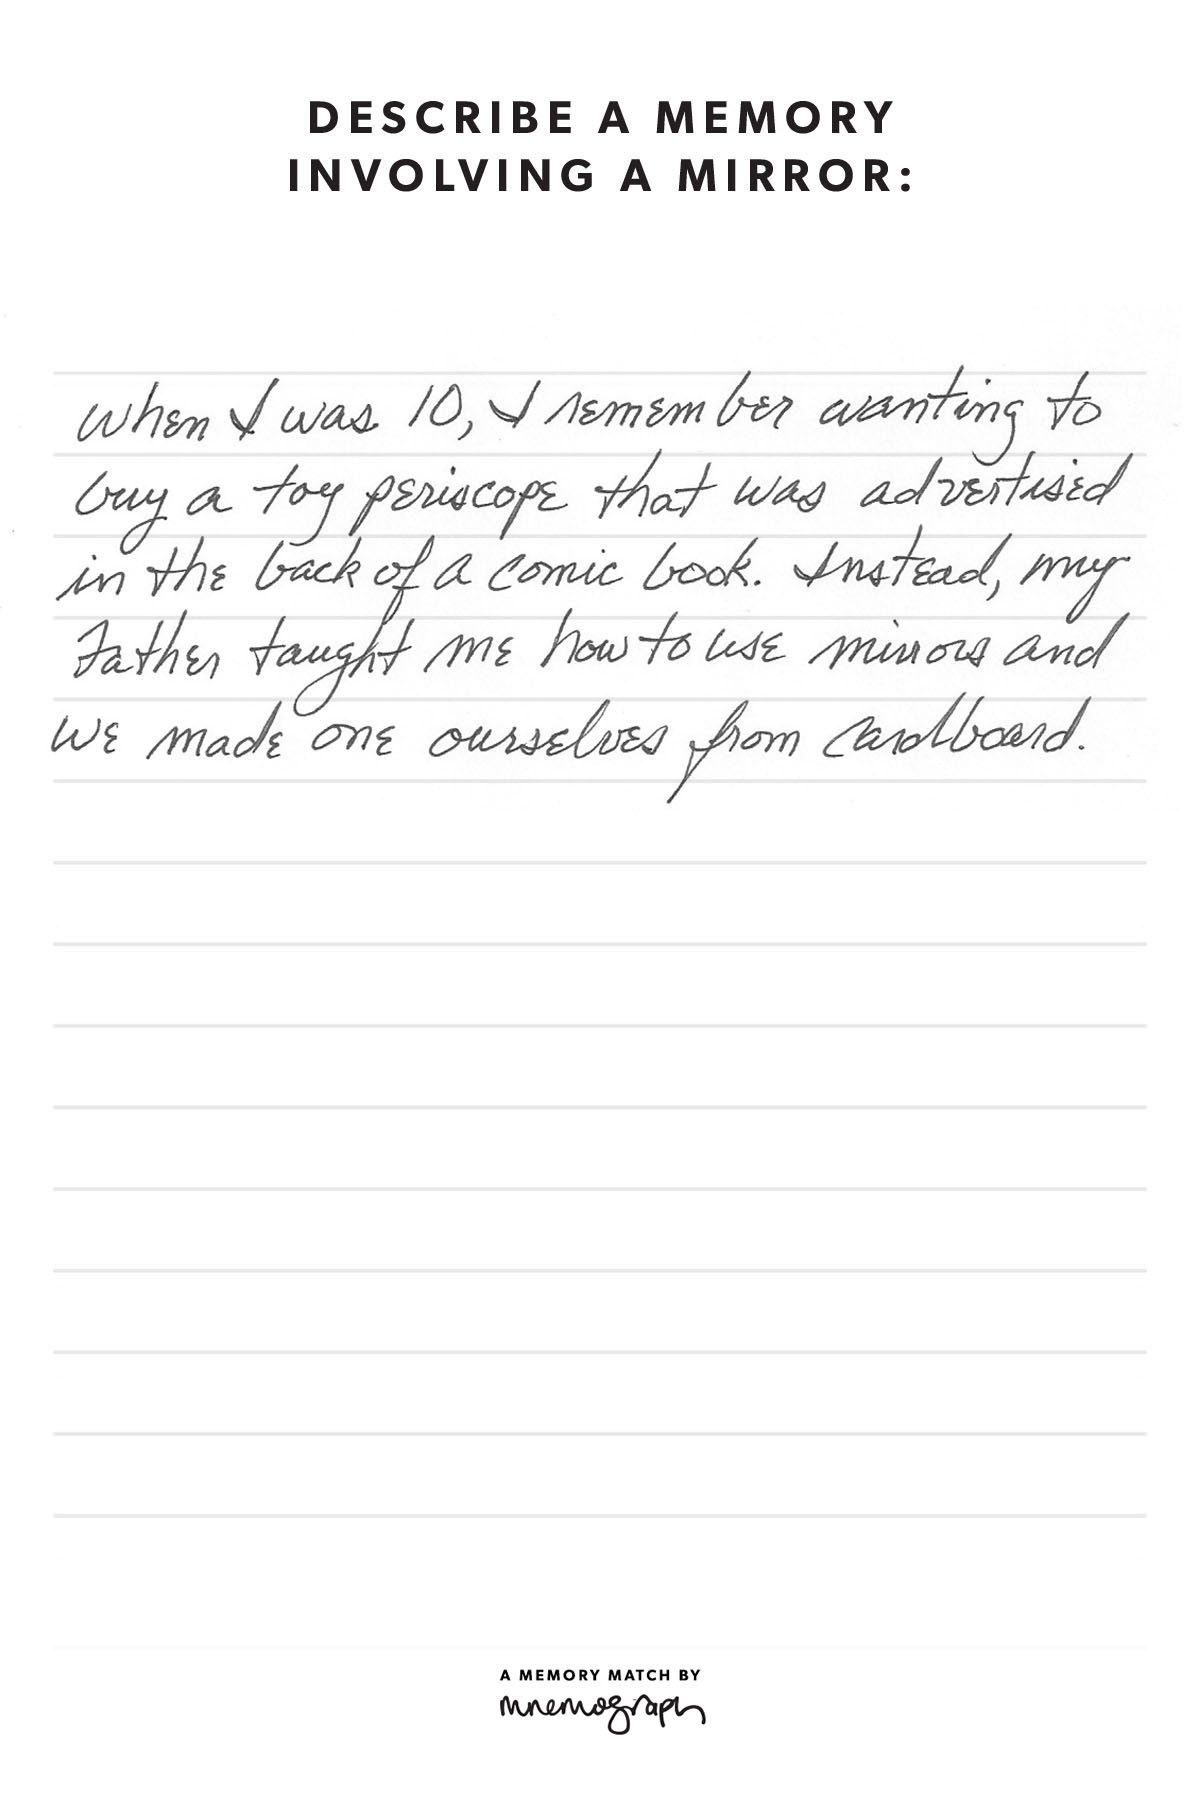 DESCRIBE A MEMORY
INVOLVING A MIRROR:
When I was 10, I remember wanting to
buy a toy periscope that was advertised
in the back of a comic book. Instead, my
Father taught me how to use mirrors and
we made one ourselves from cardboard.
A MEMORY MATCH BY
mnemograph